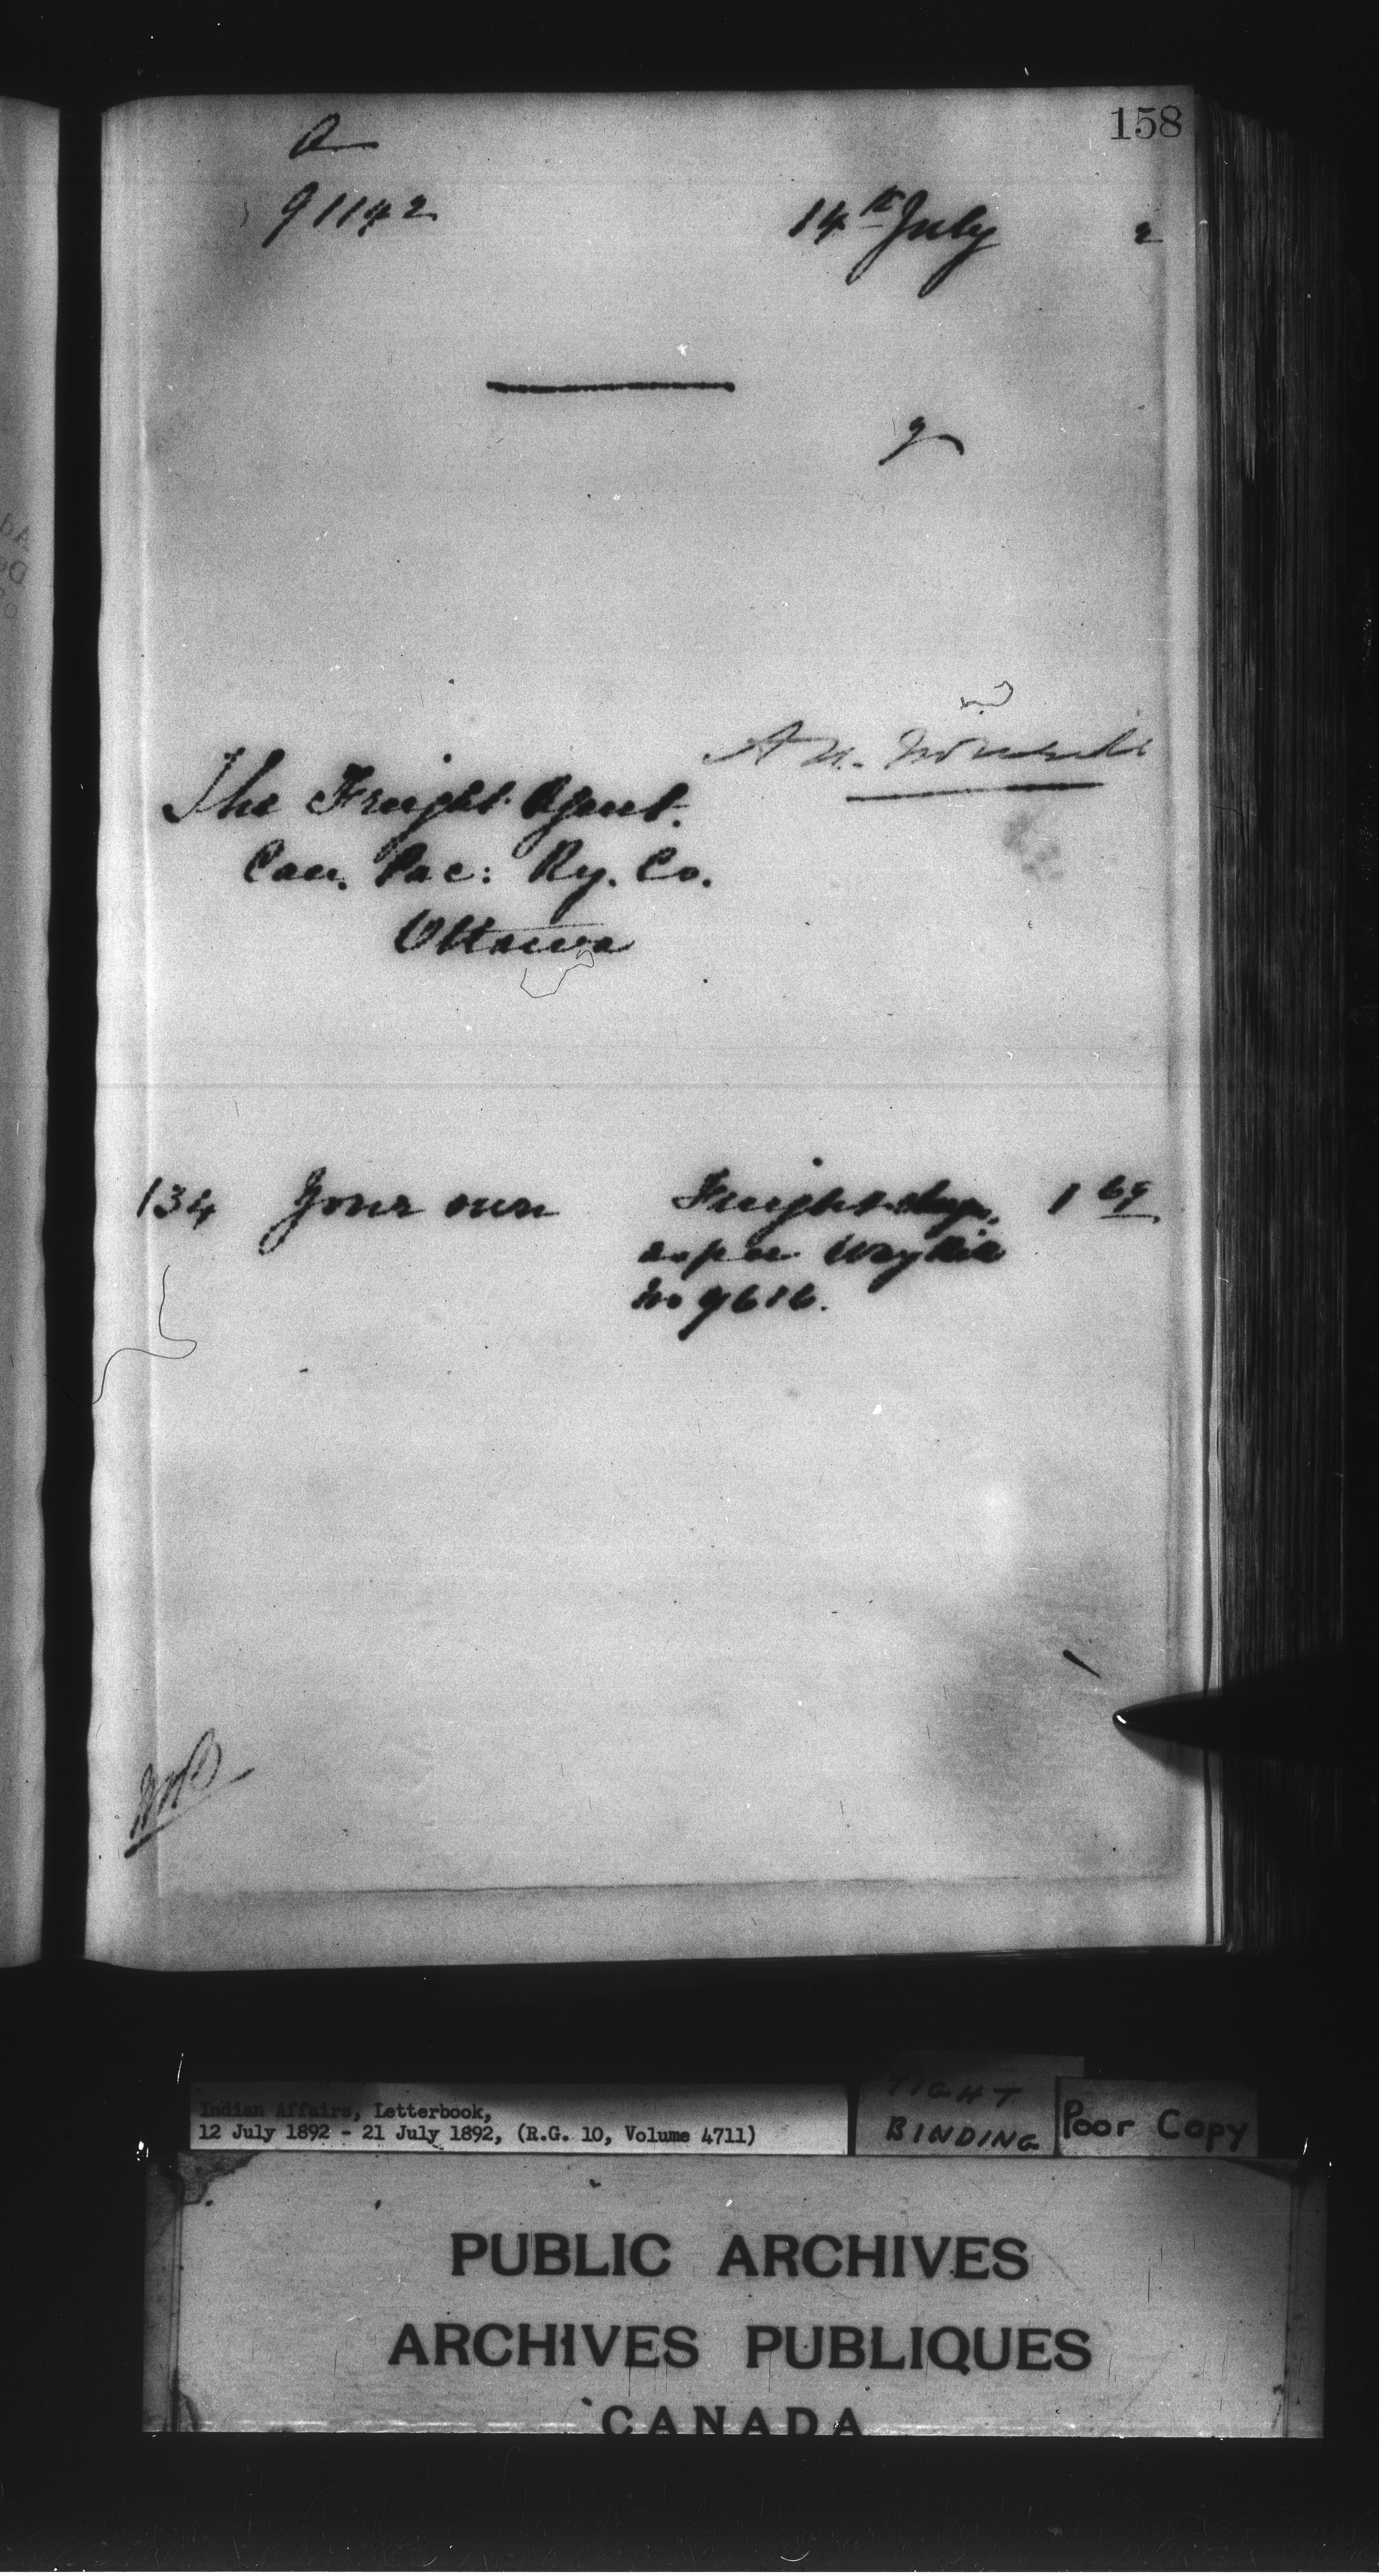 158
A
91142
14th July 2
The Freight Agent.
Can. Pac: Ry. Co.
Ottawa
134 Your own Freight chgs. 1 69
as per Way Bill
No 9616.
Indian Affairs, Letterbook,
12 July 1892 - 21 July 1892, (R.G. 10, Volume 4711)
TIGHT
BINDING
Poor Copy
PUBLIC ARCHIVES
ARCHIVES PUBLIQUES
CANADA